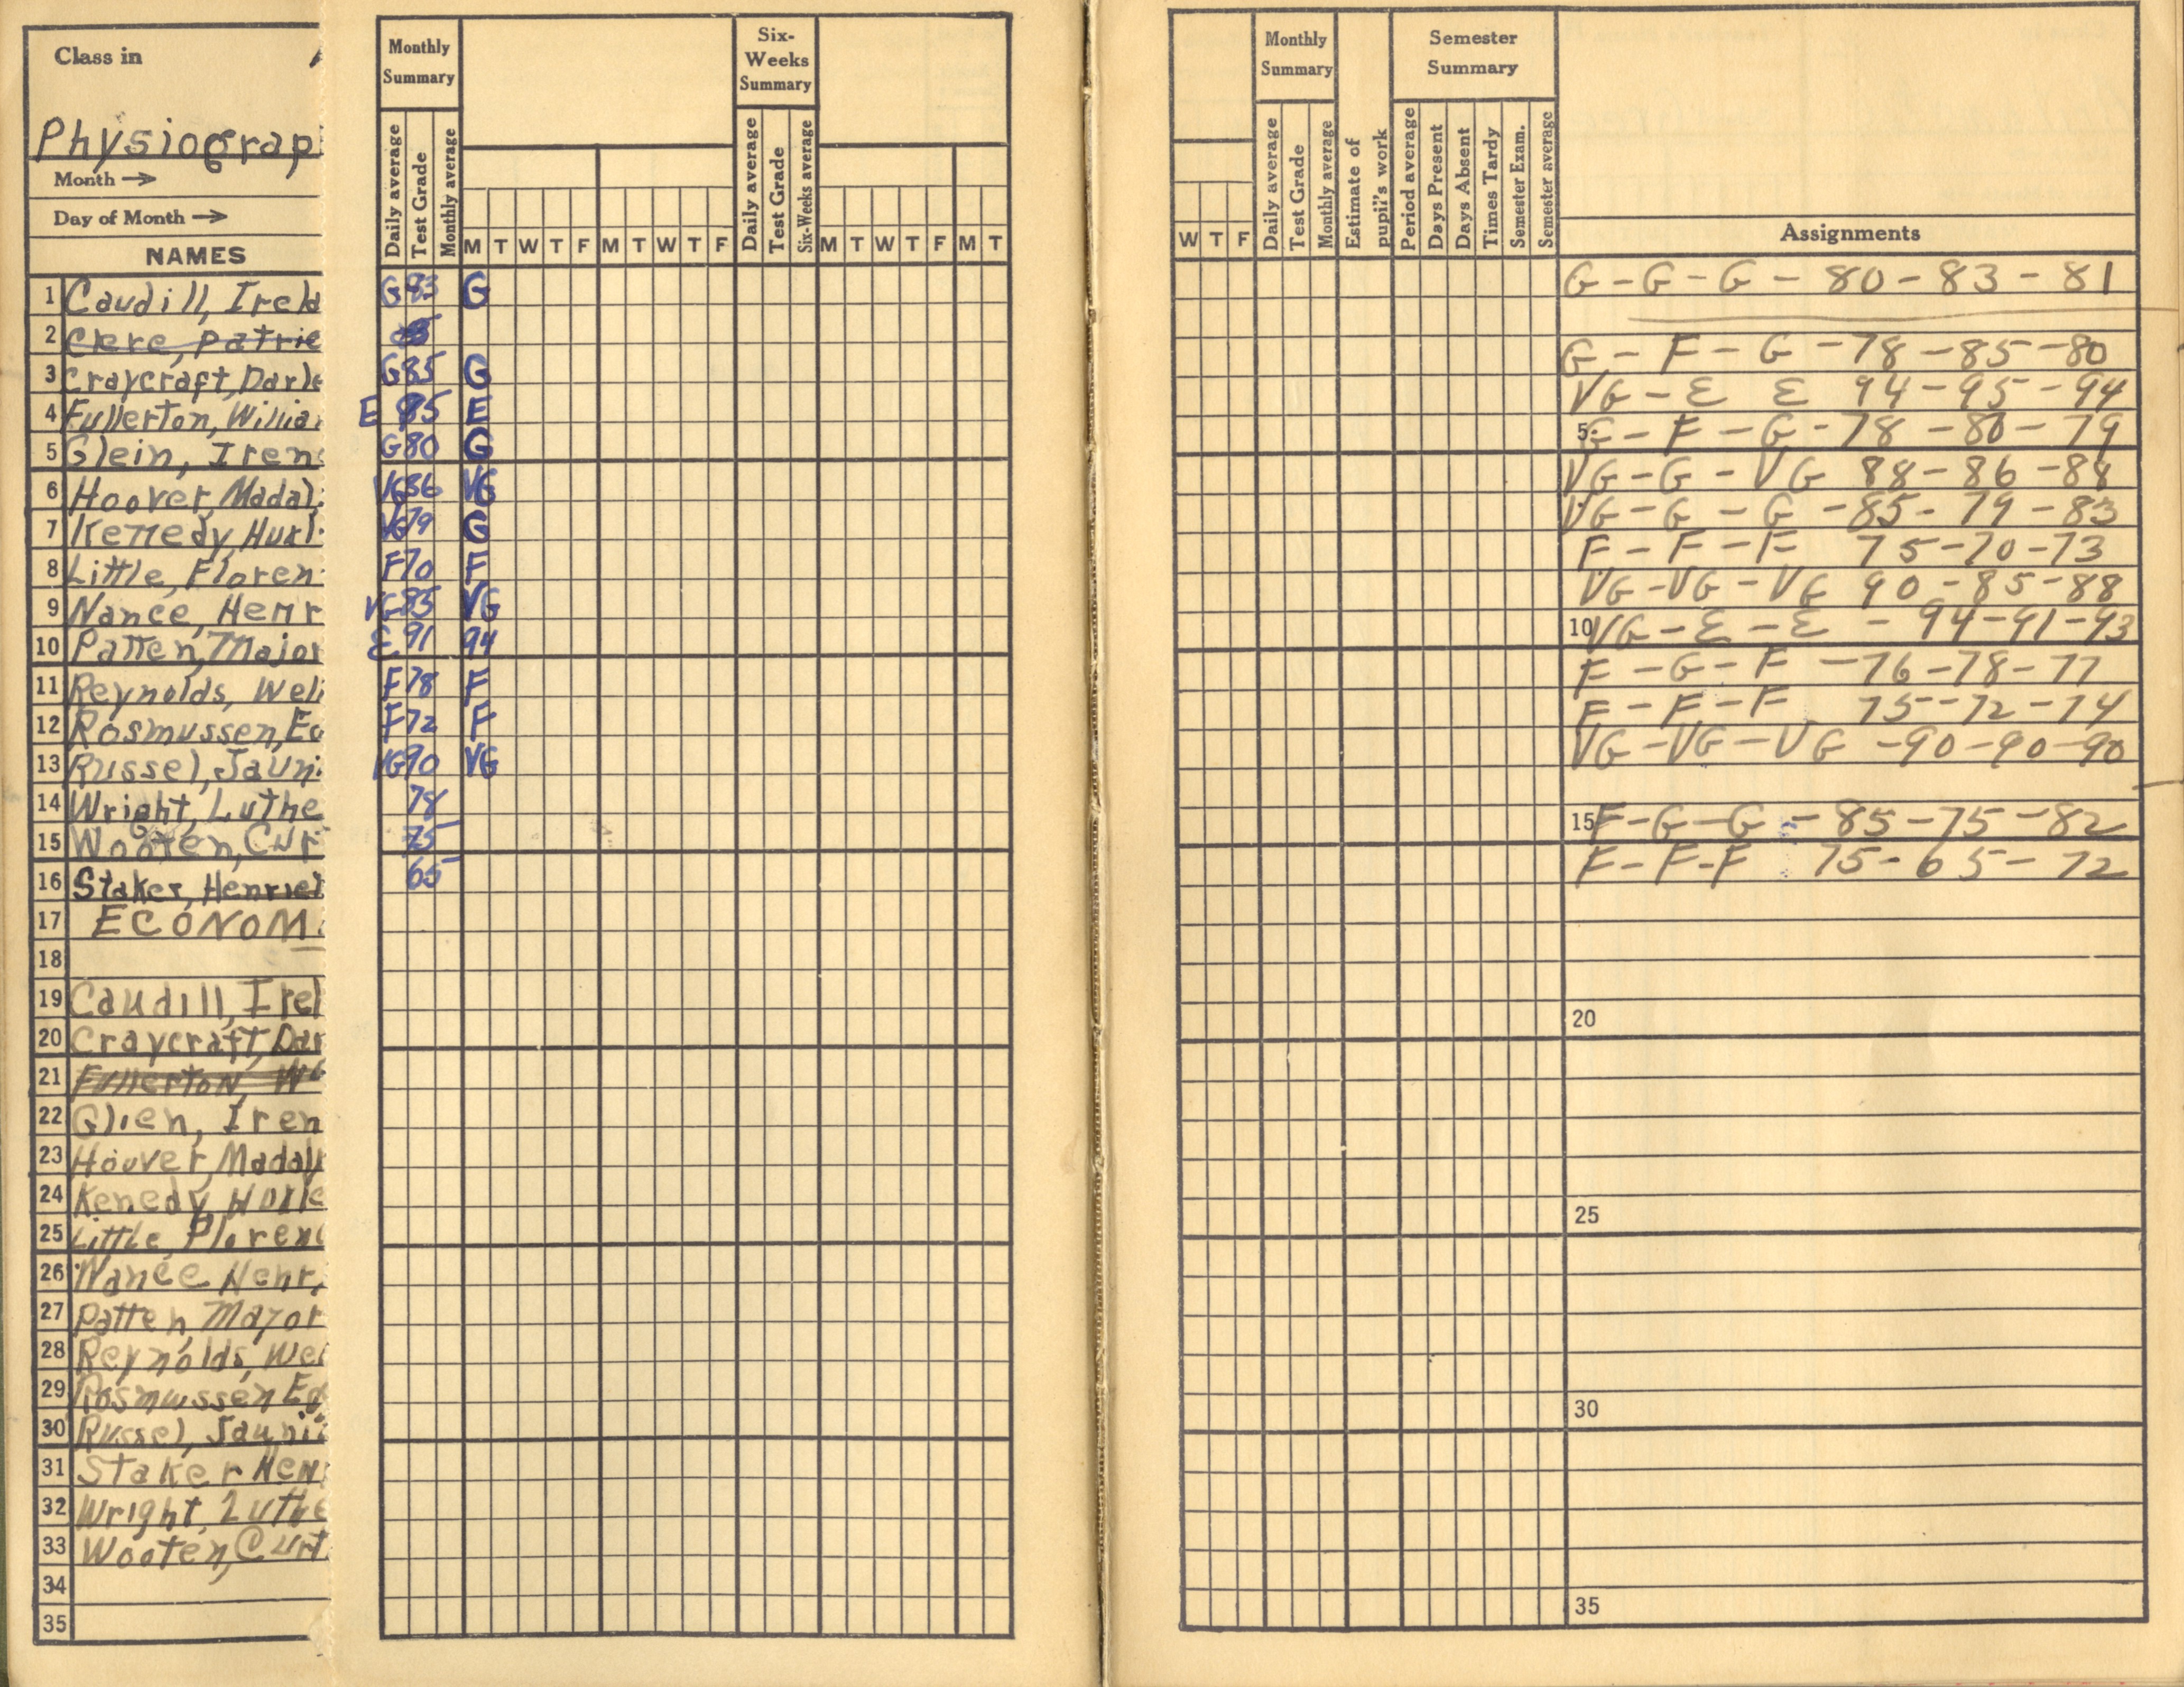 Class in
Physiograp
Month →
Day of Month →
NAMES
Monthly Summary
Six-Weeks Summary
Daily average Test Grade Monthly average
Daily average Test Grade Six-Weeks average
M T W T F M T W T F M T W T F M T
Monthly Summary
Semester Summary
Daily average Test Grade Monthly average Estimate of pupil's work Period average Days Present Days Absent Times Tardy Semester Exam. Semester average
W T F
Assignments
1 Caudill, Irela G 83 G G - G - G - 80 - 83 - 81
2 Clere, Patric
3 Craycraft, Darle G 85 G G - F - G - 78 - 85 - 80
4 Fullerton, Willia E 95 E VG - E E 94 - 95 - 94
5 Glein, Iren G 80 G 5 G - F - G - 78 - 80 - 79
6 Hoover, Madal VG 86 VG VG - G - VG 88 - 86 - 88
7 Kenedy, Hurl VG 79 G VG - G - G - 85 - 79 - 83
8 Little, Floren F 70 F F - F - F 75 - 70 - 73
9 Nance, Henr VG 85 VG VG - VG - VG 90 - 85 - 88
10 Patten, Major E 91 94 10 VG - E - E - 94 - 91 - 93
11 Reynolds, Wel F 78 F F - G - F - 76 - 78 - 77
12 Rosmussen, Ed F 72 F F - F - F 75 - 72 - 74
13 Russel, Jauni VG 90 VG VG - VG - VG - 90 - 90 - 90
14 Wright, Luthe 78
15 Wooten, Cur 75 15 F - G - G - 85 - 75 - 82
16 Staker, Henriet 65 F - F - F 75 - 65 - 72
17 ECONOM
18
19 Caudill, Irel
20 Craycraft, Dar 20
21 Fullerton, W
22 Glien, Iren
23 Hoover, Madaly
24 Kenedy, Hurle
25 Little, Floren 25
26 Nance Henr
27 Patten, Major
28 Reynolds, Wel
29 Rosmussen Ed
30 Russel, Jauni 30
31 Staker Hen
32 Wright, Luthe
33 Wooten, Curt
34
35 35